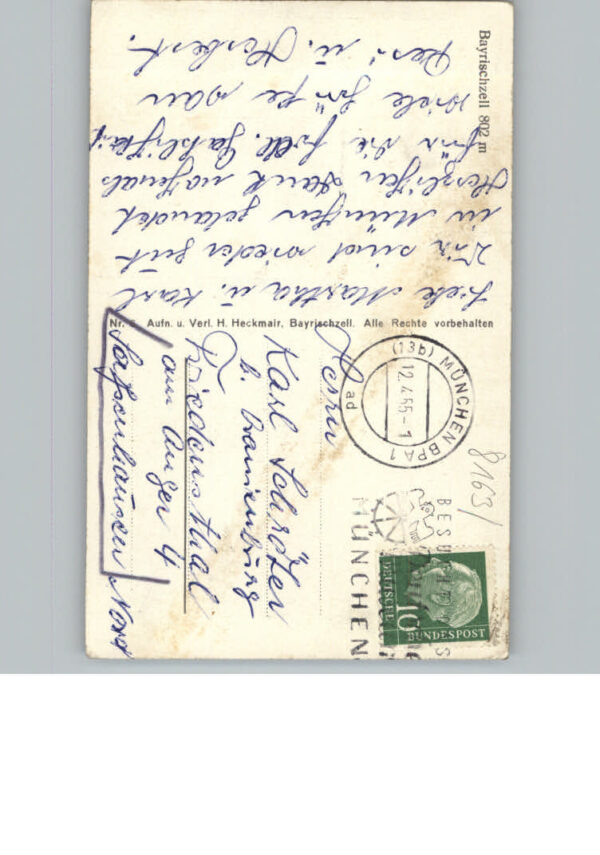 Bayrischzell 802 m
Liebe Martha u. Karl
Wir sind wieder gut
in München gelandet
Herzlichen Dank nochmals
für die Gastlichkeit
Viele Grüße von
Resi u. Herbert.
Nr. Aufn. u. Verl. H. Heckmair, Bayrischzell. Alle Rechte vorbehalten
Herrn
Karl Schröter
b. Oranienburg
Friedensthal
am Anger 4
Sachsenhausen Nord
(13b) MÜNCHEN BPA 1
12.4.55-1
ad
8163/
BESUCHT
MÜNCHEN
10
DEUTSCHE
BUNDESPOST